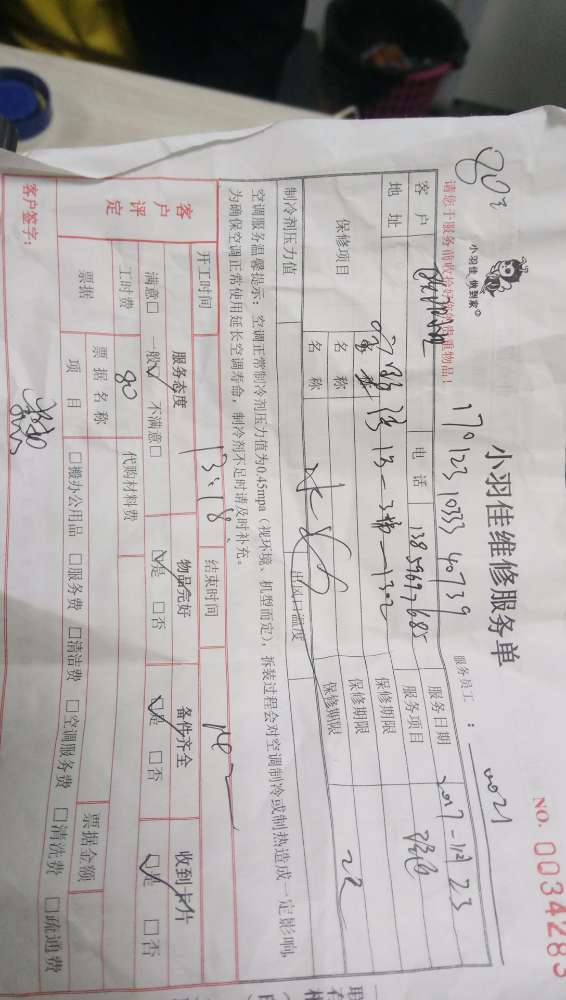 小羽佳维修服务单
NO. 0034283
小羽佳 快到家
服务员工：0021
80元
请您于服务前收拾好您的贵重物品！
17012310333 40739
客户
电话 13859697685
服务日期 2017-1月23
地址
服务项目
保修项目
名称
保修期限
名称
保修期限
制冷剂压力值
出风口温度
空调服务温馨提示：空调正常制冷剂压力值为0.45mpa（视环境、机型而定），拆装过程会对空调制冷或制热造成一定影响，
为确保空调正常使用延长空调寿命，制冷剂不足时请及时补充。
开工时间 13:18 结束时间
客户评定
服务态度 物品完好 备件齐全 收到卡片
满意□ 一般☑ 不满意□ ☑是 □否 ☑是 □否 ☑是 □否
工时费 80 代购材料费
票据
票据名称
票据金额
项目 □搬办公用品 □服务费 □清洁费 □空调服务费 □清洗费 □疏通费
客户签字：